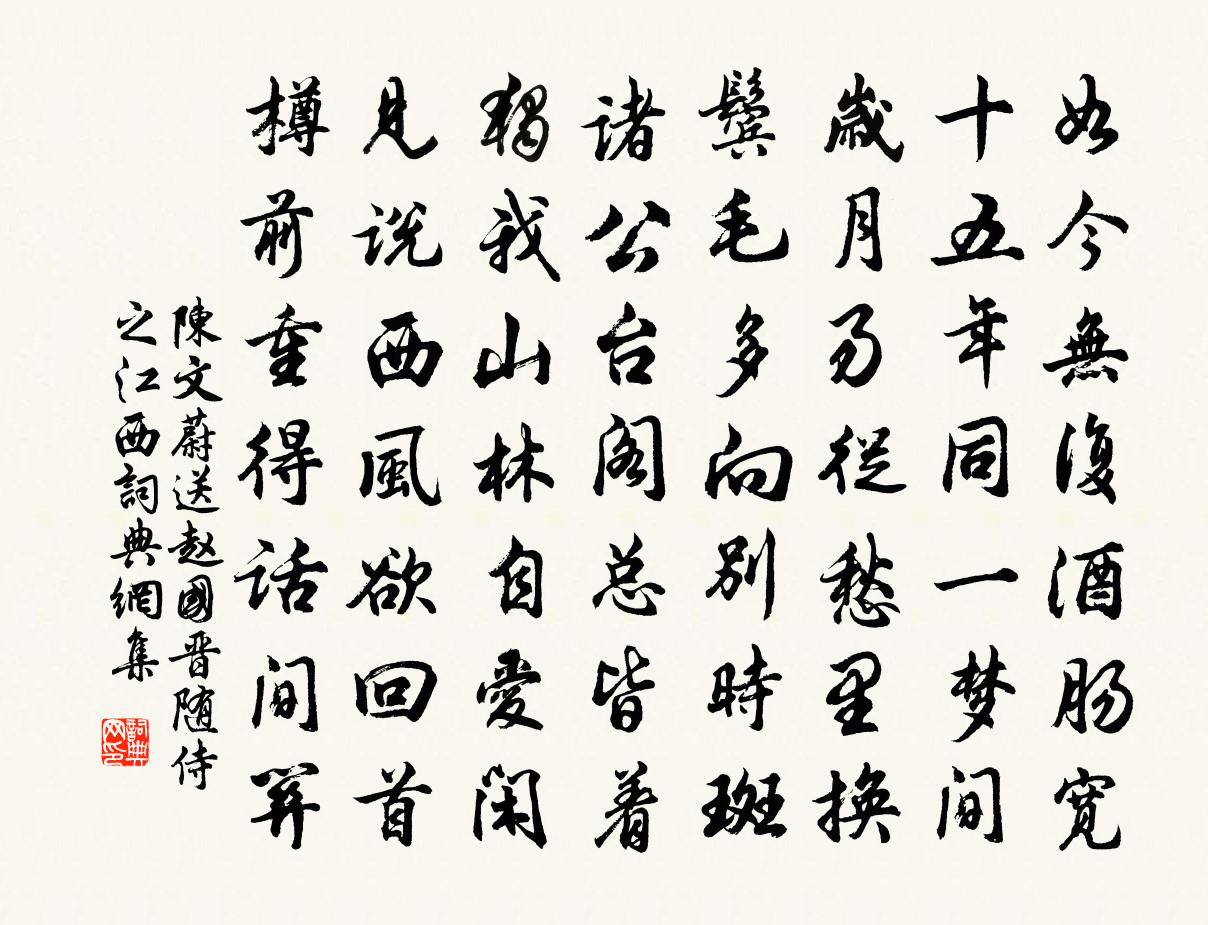 如今無復酒肠寬
十五年同一梦间
歲月易從愁里换
鬓毛多向别時斑
诸公台阁总皆着
獨我山林自愛闲
見说西風欲回首
樽前重得话间关
陳文蔚送赵國晋随侍
之江西詞典網集
詞典网印